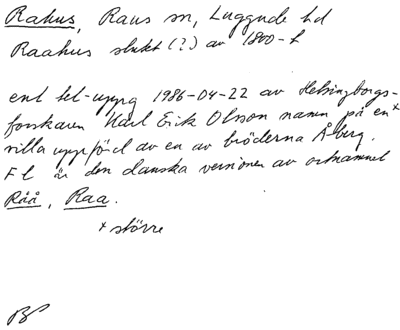 Rahus, Raus sn, Luggude hd
Raahus slutet (?) av 1800-t
enl tel-uppg 1986-04-22 av Helsingborgs-
forskaren Karl Erik Olsson namn på en x
villa uppförd av en av bröderna Åberg.
FL är den danska versionen av ortnamnet
Råå, Raa.
x större